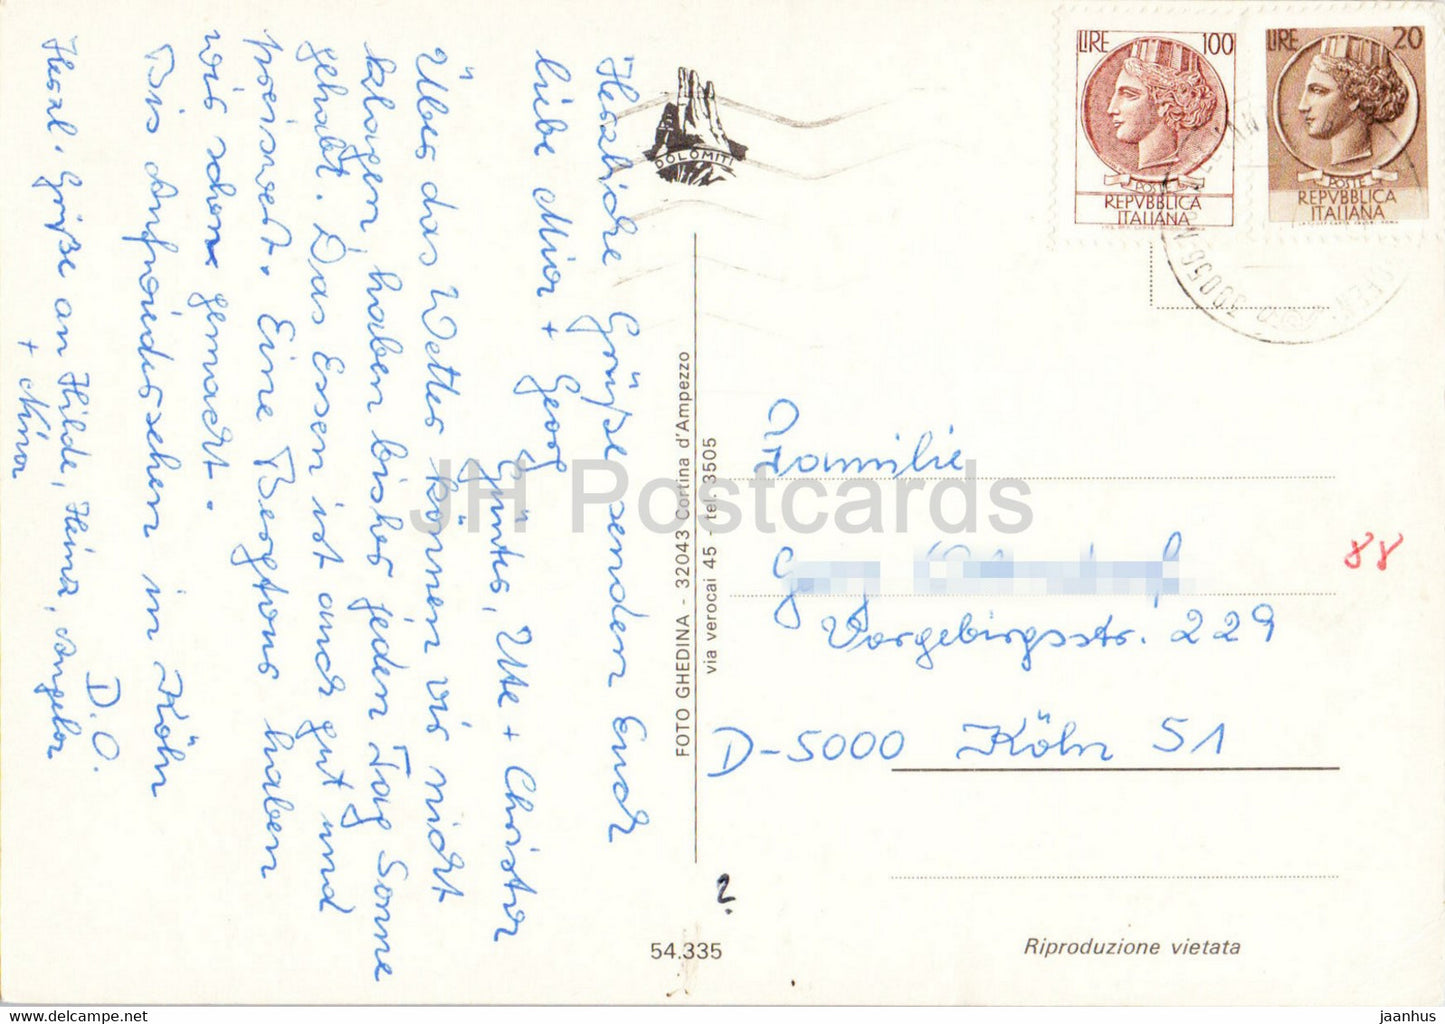 Herzliche Grüße senden Euch
liebe Mia + Georg
Günter, Ute + Christa
Über das Wetter können wir nicht
klagen, haben bisher jeden Tag Sonne
gehabt. Das Essen ist auch gut und
preiswert. Eine Bergtour haben
wir schon gemacht.
Bis Aufwiedersehen in Köln
D.O.
Herzl. Grüße an Hilde, Heinz, Angela
+ Nina
DOLOMITI
FOTO GHEDINA - 32043 Cortina d'Ampezzo
via verocai 45 - tel. 3505
LIRE 100
POSTE
REPVBBLICA
ITALIANA
LIRE 20
POSTE
REPVBBLICA
ITALIANA
Familie
Vorgebirgsstr. 229
D-5000 Köln 51
88
2.
54.335
Riproduzione vietata
JH Postcards
www.delcampe.net
jaanhus